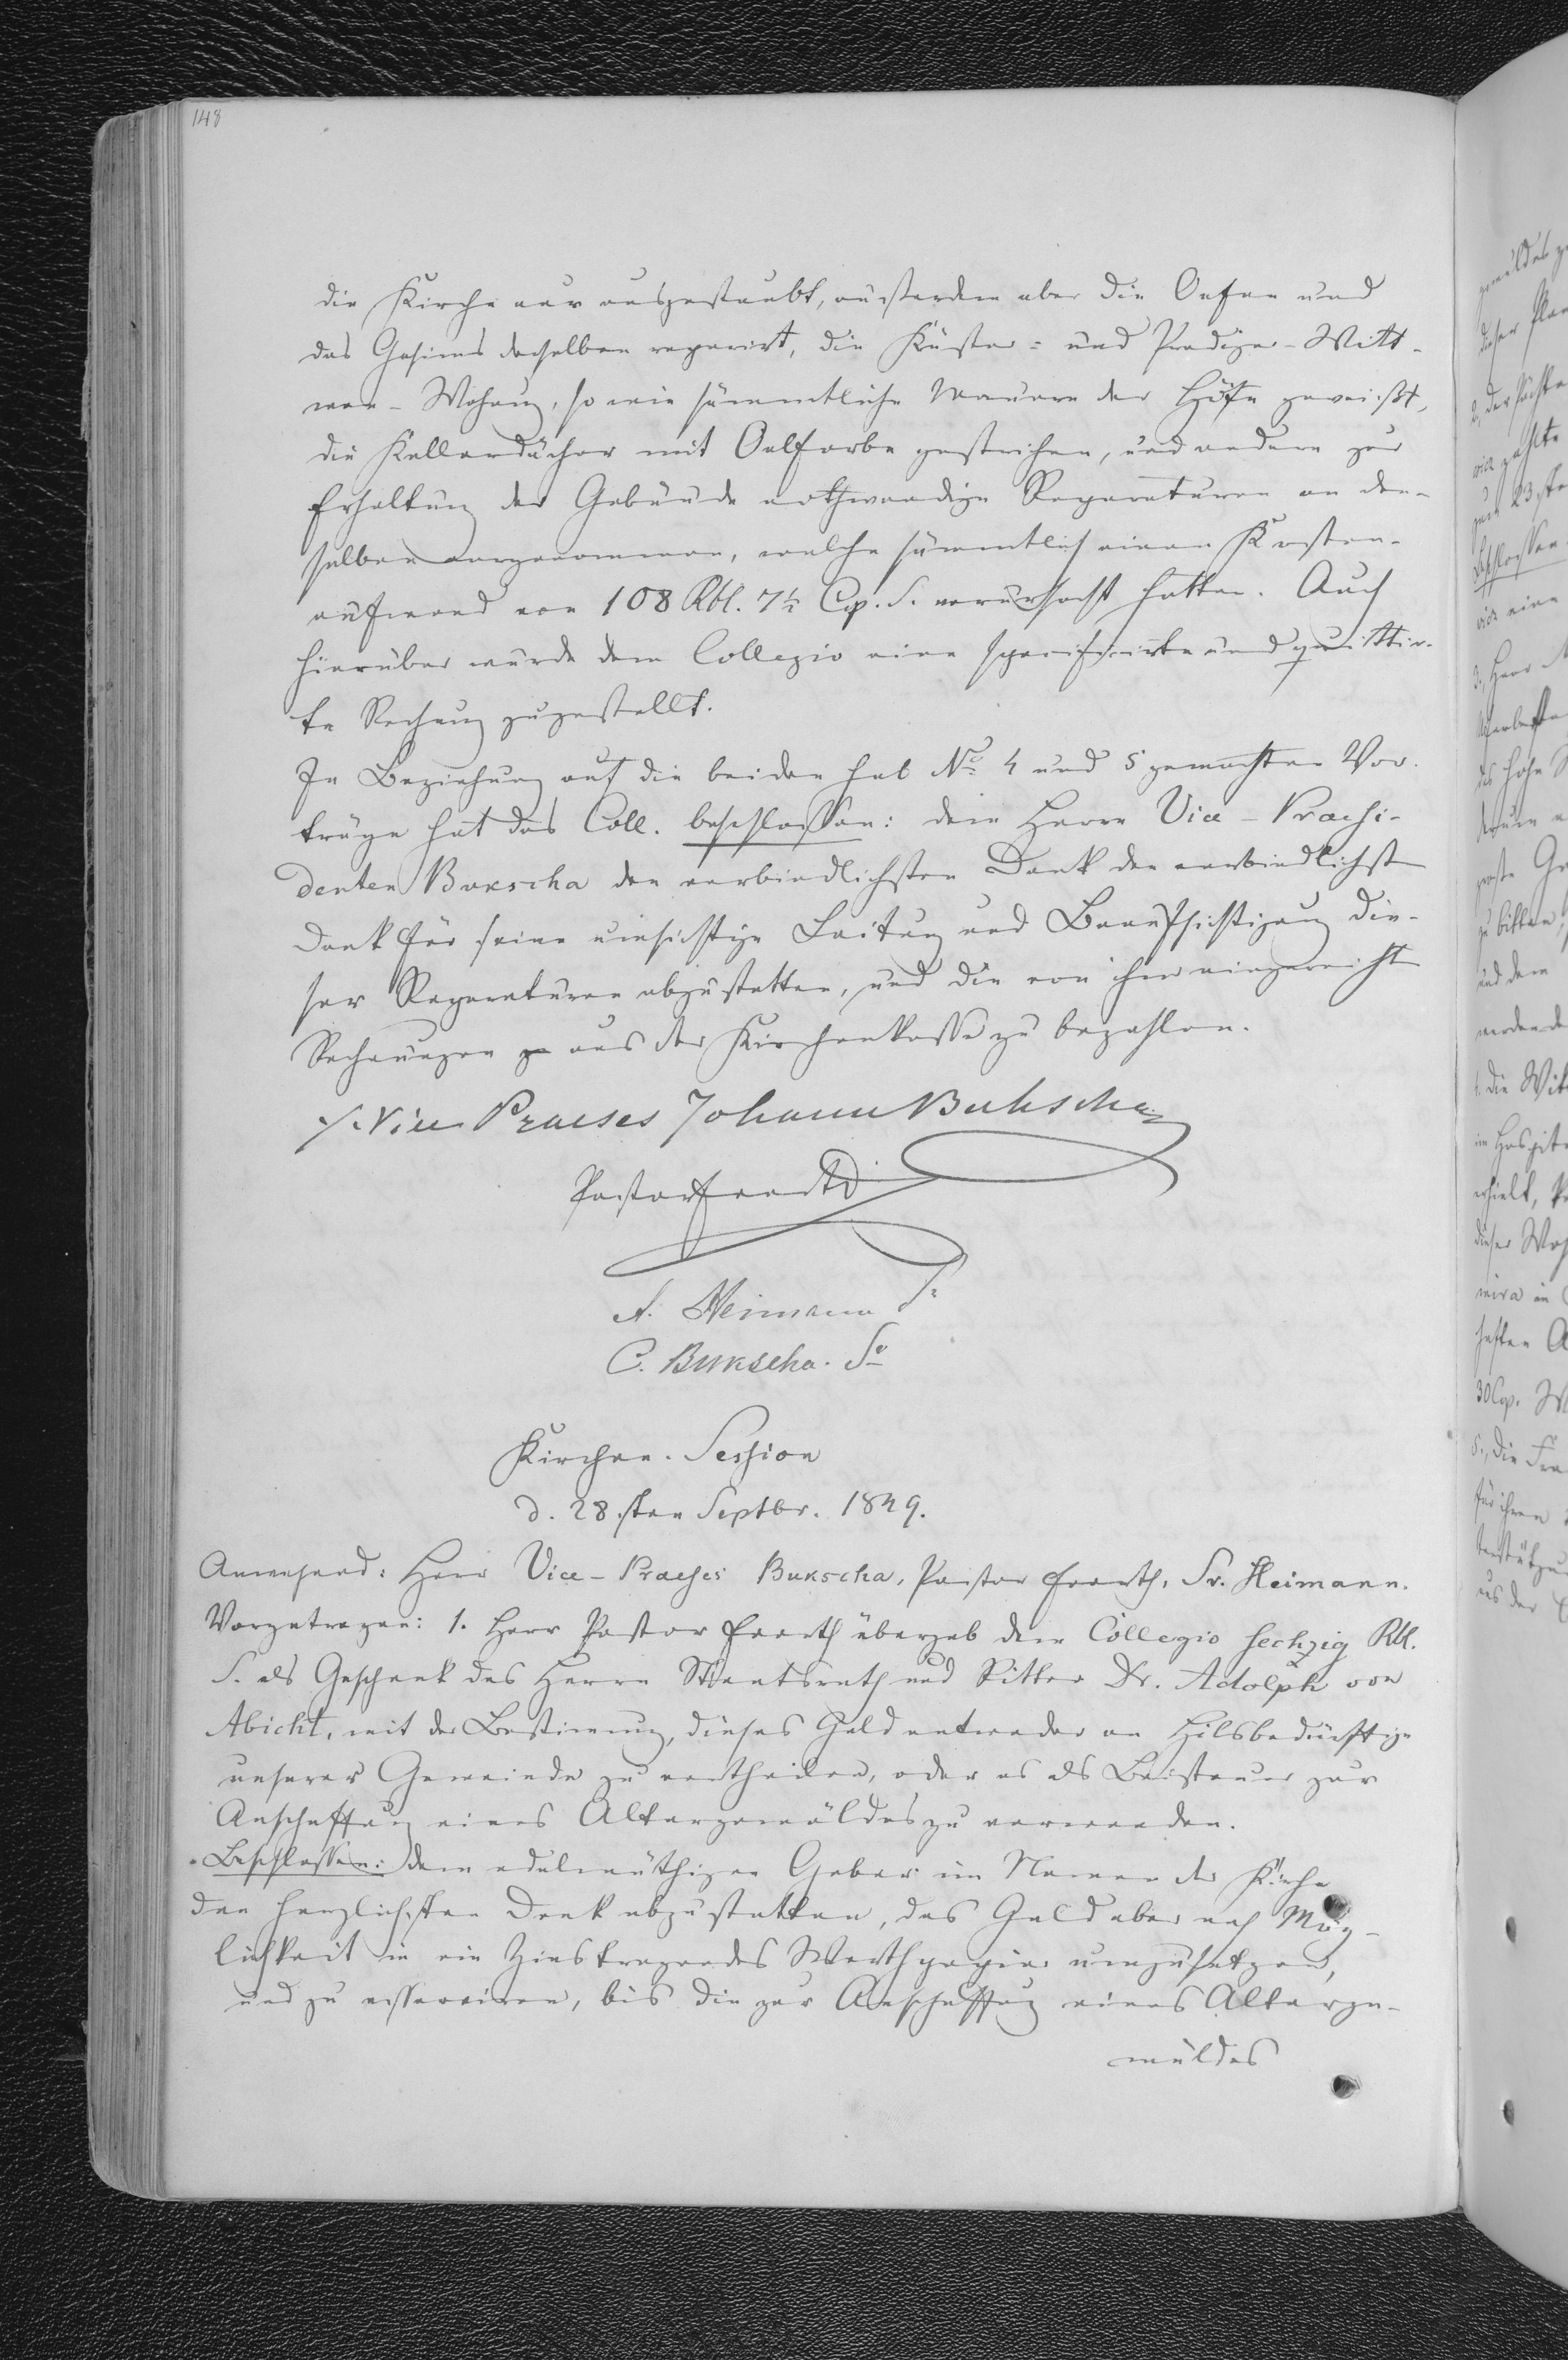 148
die Kirche nur ausgestaubt, außerdem aber die Oefen und
das Gesims derselben reparirt, die Küster- und Prediger-Witt-
wen-Wohnug, so wie sämmtliche Mauern der Höfe geweißt,
die Kellerdächer mit Oelfarbe gestrichen, und andere zur
Erhaltung der Gebäude nothwendige Reparaturen an den-
selben vorgenommen, welche sämmtlich einen Kosten-
aufwand von 108 Rbl. 7½ Cop. S. verursacht hatten. Auch
hierüber wurde dem Collegio eine specificirte und quittir-
te Rechnug zugestellt.
In Beziehung auf die beiden sub No 4 und 5 gemachten Vor-
träge hat das Coll. beschlossen: dem Herrn Vice-Praesi-
denten Bukscha den verbindlichsten Dank den verbindlichst
Dank für seine umsichtige Leitung und Beaufsichtigung die-
ser Reparaturen abzustatten, und die von ihm eingereicht
Rechnungen zu aus der Kirchenkasse zu bezahlen.
Vice Praeses Johann Bukscha
Pastor
A. Heimann Sr
C. Bukscha. Sr
Kirchen-Session
d. 28.sten Septbr. 1849.
Anwesend: Herr Vice-Praeses Bukscha, Pastor Sr. Heimann.
Vorgetragen: 1. Herr Pastor übergab dem Collegio sechzig Rbl.
S. als Geschenk des Herrn Staatsrath und Ritter Dr. Adolph von
Abicht, mit der Bestimmug, dieses Geld entweder an Hilsbedürftige
unserer Gemeinde zu vertheilen, oder es als Beisteuer zur
Anschaffung eines Altargemäldes zu verwenden.
Beschlossen: dem edelmüthigen Geber im Namen der Kirche
den herzlichsten Dank abzustatten, das Geld aber nach Mög-
lichkeit in ein Zinstragendes Werthpapier umzusetzen,
und zu asserviren, bis die zur Anschaffug eines Altarge-
mäldes